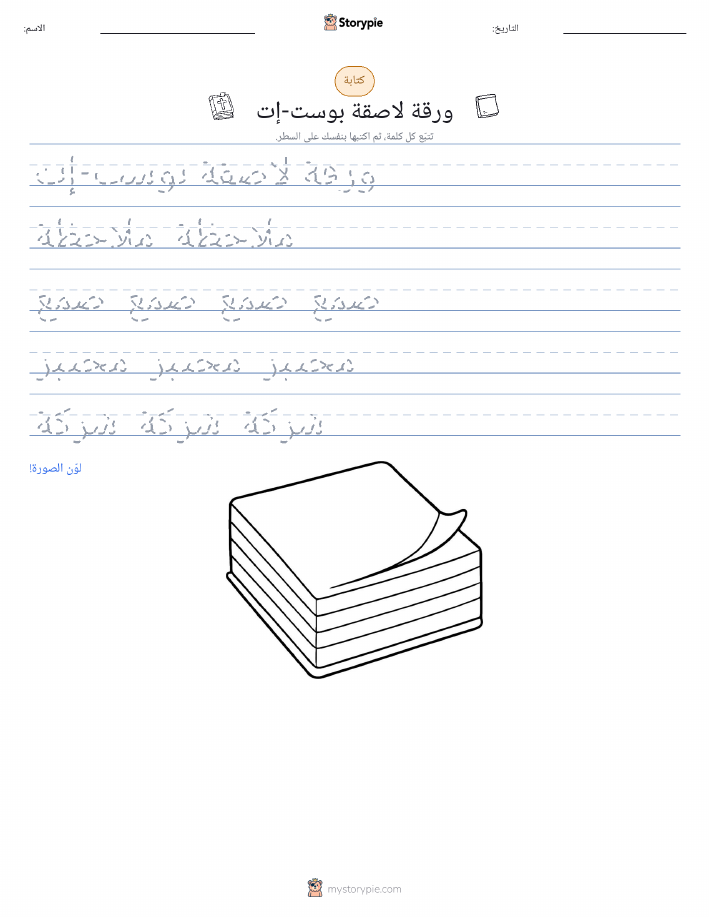 الاسم: Storypie التاريخ:
كتابة
ورقة لاصقة بوست-إت
تتبّع كل كلمة، ثم اكتبها بنفسك على السطر.
ورقة لاصقة بوست-إت
ملاحظة ملاحظة
صمغ صمغ صمغ صمغ
مختبر مختبر مختبر
شركة شركة شركة
لوّن الصورة!
mystorypie.com